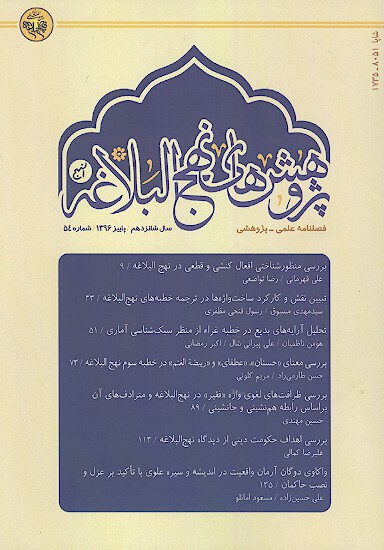 شاپا ۸۰۵۱ - ۱۷۳۵
پژوهش‌های نهج البلاغه
فصلنامه علمی - پژوهشی
سال شانزدهم / پاییز ۱۳۹۶ / شماره ۵۴
بررسی منظورشناختی افعال کنشی و قطعی در نهج البلاغه / ۹
علی قهرمانی / رضا تواضعی
تبیین نقش و کارکرد ساخت‌واژه‌ها در ترجمه خطبه‌های نهج‌البلاغه / ۲۳
سیدمهدی مسبوق / رسول فتحی مظفری
تحلیل آرایه‌های بدیع در خطبه غراء از منظر سبک‌شناسی آماری / ۵۱
هومن ناظمیان / علی پیرانی شال / اکبر رمضانی
بررسی معنای «حسنان»، «عطفای» و «ربیضة الغنم» در خطبه سوم نهج البلاغه / ۷۳
حسن طارمی‌راد / مریم کلوتی
بررسی ظرافت‌های لغوی واژه «فقیر» در نهج‌البلاغه و مترادف‌های آن
براساس رابطه هم‌نشینی و جانشینی / ۸۹
حسین مهتدی
بررسی اهداف حکومت دینی از دیدگاه نهج‌البلاغه / ۱۱۳
علیرضا کمالی
واکاوی دوگان آرمان واقعیت در اندیشه و سیره علوی با تأکید بر عزل و
نصب حاکمان / ۱۳۵
علی حسین‌زاده / مسعود امانلو